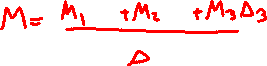 M = M₁ + M₂ + M₃ Δ₃
Δ